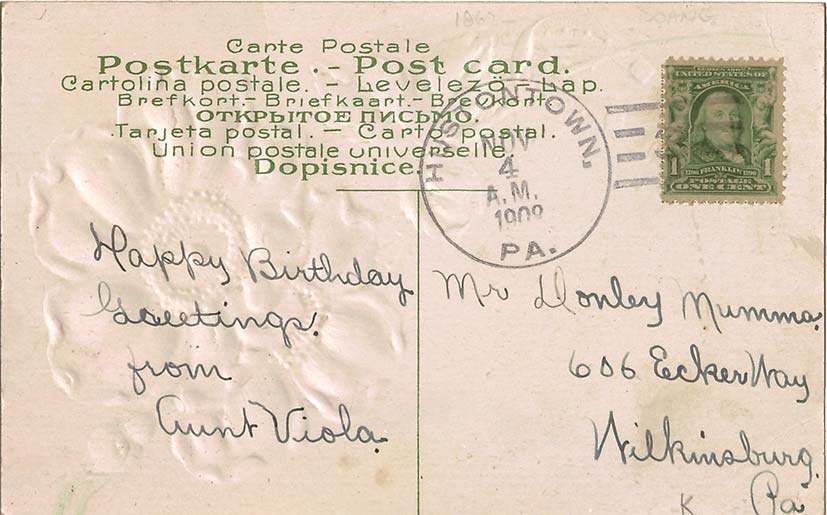 Carte Postale
Postkarte. - Post card.
Cartolina postale. - Levelező - Lap.
Brefkort. - Briefkaart. - Brevkort.
ОТКРЫТОЕ ПИСЬМО.
Tarjeta postal. — Carto postal.
Union postale universelle.
Dopisnice.
HUSTONTOWN,
NOV
4
A.M.
PA.
UNITED STATES OF
AMERICA
1
1
FRANKLIN
POSTAGE
ONE CENT
Happy Birthday
Greetings!
from
Aunt Viola.
Mr Donley Mumma
606 Ecker Way
Wilkinsburg
Pa
K